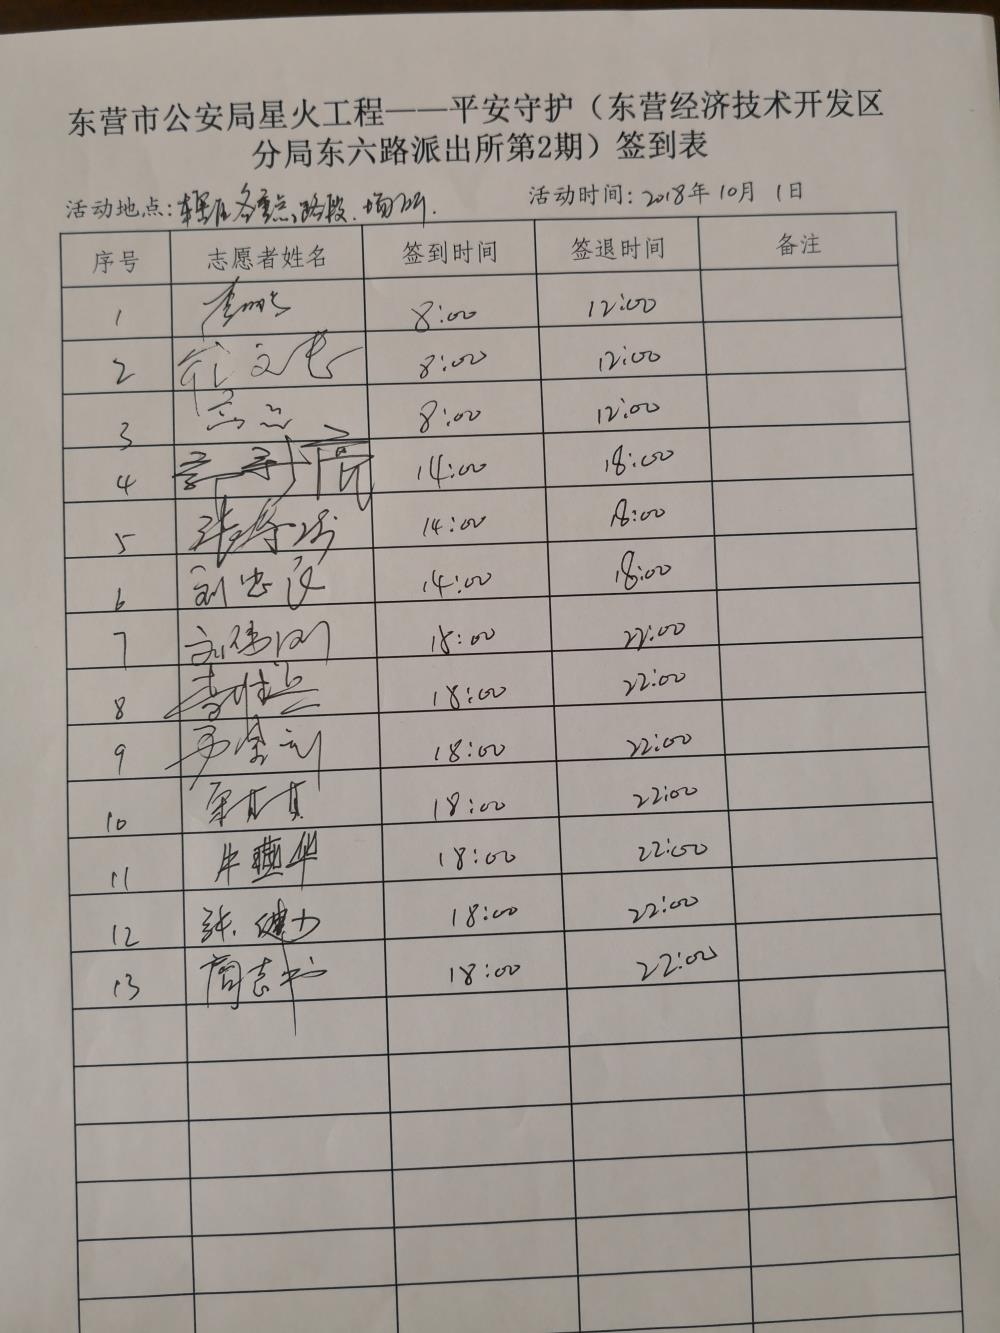 东营市公安局星火工程——平安守护（东营经济技术开发区
分局东六路派出所第2期）签到表
活动地点:辖区各重点路段、场所. 活动时间:2018年10月1日
序号 志愿者姓名 签到时间 签退时间 备注
1 8:00 12:00
2 8:00 12:00
3 8:00 12:00
4 14:00 18:00
5 14:00 18:00
6 刘忠 14:00 18:00
7 18:00 22:00
8 18:00 22:00
9 18:00 22:00
10 18:00 22:00
11 18:00 22:00
12 张健力 18:00 22:00
13 周志 18:00 22:00